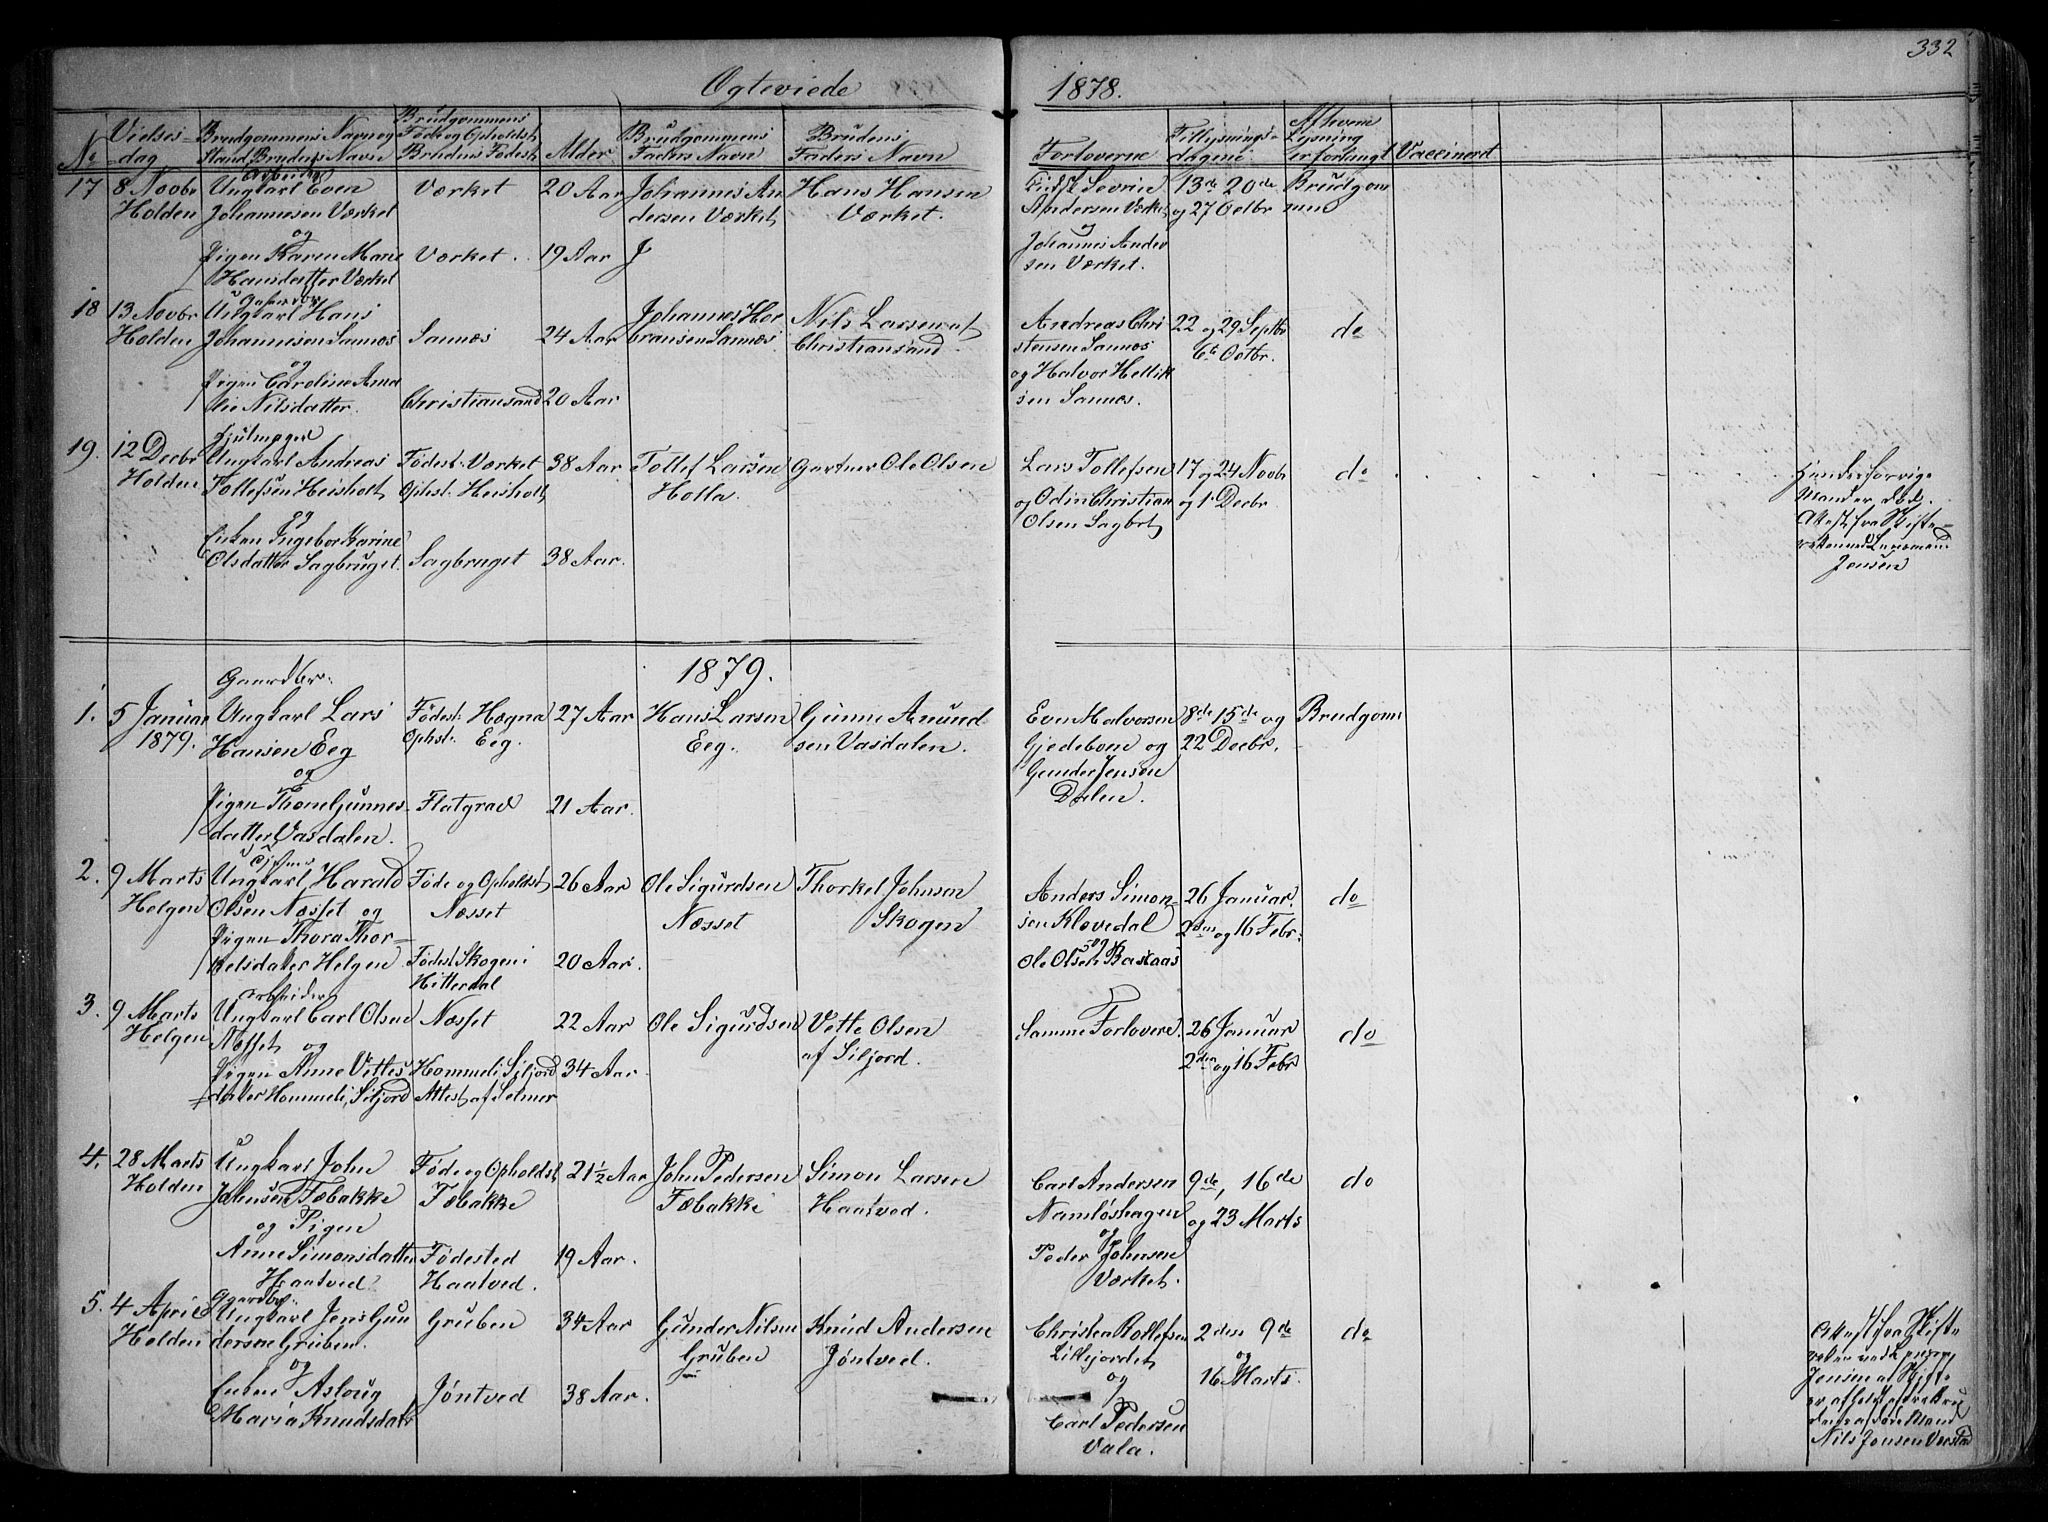 332
Ogteviede 1878.
No Vielses-dag Brudgommens Navn og Stand Brudens Navn Brudgommens Føde og Opholdst Brudens Fødest Alder Brudgommens Faders Navn Brudens Faders Navn Forloverne Tillysnings-dagene Af hvem Lysning er forlangt Vaccineret
17 8 Novbr Holden
Arbeider
Ungkarl Even
Johannesen Værket
og
Pigen Karen Marie
Hansdatter Værket
Værket
Værket.
20 Aar
19 Aar
Johannes An
dersen Værket
J
Hans Hansen
Værket.
Sevrin
Andersen Værket
og
Johannes Ander
sen Værket.
13de 20de
og 27 Octbr
Brudgom
men
18 13 Novbr
Holden
Ungkarl Hans
Johannesen Sannes
og
Pigen Caroline Ama
lie Nilsdatter.
Sannes
Christiansand
24 Aar
20 Aar
Johannes Hol
bransen Sannes
Nils Larsen af
Christiansand.
Andreas Chri
stensen Sannes
og Halvor Hellik
sen Sannes.
22 og 29 Septbr
6te Octbr.
do
19. 12 Decbr
Holden
Hjulmager
Ungkarl Andreas
Tollefsen Heisholt
og
Enken Ingebor Karine
Olsdatter Sagbruget.
Fødest. Værket
Ophst. Heisholt
Sagbruget
38 Aar
38 Aar.
Tollef Larsen
Holla.
Gartner Ole Olsen
Lars Tollefsen
og Odin Christian
Olsen Sagbrt
17 og 24 Novbr
og 1 Decbr
do
Hendes forrige
Mand er død.
Attest fra Skifte-
retten ved Lensmand
Jensen
1879.
1. 5 Januar
1879.
Gaardbr:
Ungkarl Lars
Hansen Eeg
og
Pigen Thone Gunnes-
datter Vasdalen.
Fødest: Hægna
Ophst: Eeg.
Flatgrav
27 Aar
21 Aar.
Hans Larsen
Eeg.
Gunne Anund-
sen Vasdalen.
Even Halvorsen
Gjedeboen og
Gunder Jensen
Dalen.
8de 15de og
22 Decbr.
Brudgom
2. 9 Marts
Helgen
Ungkarl Harald
Olsen Næsset og
Pigen Thora Thor-
kelsdater Helgen
Føde og Opholdst
Næsset
Fødest Skogen i
Hitterdal
26 Aar
20 Aar.
Ole Sigurdsen
Næsset
Thorkel Johnsen
Skogen
Anders Simon-
sen Klovedal
og
Ole Olsen Bastaas
26 Januar.
2den og 16 Febr.
do
3. 9 Marts
Helgen
Arbeider
Ungkarl Carl Olsen
Næsset og
Pigen Anne Vettes
dater Hommeli, Siljord
Næsset
Hommeli Siljord
Attest af Selmer
22 Aar
34 Aar
Ole Sigurdsen
Vette Olsen
af Siljord.
Samme Forlovere.
26 Januar
2den og 16 Febr
do
4. 28 Marts
Holden
Ungkarl John
Johnsen Fæbakke
og Pigen
Anne Simonsdatter
Haatved
Føde og Opholdst
Fæbakke
Fødested
Haatved.
21 1/2 Aar
19 Aar.
John Pedersen
Fæbakke
Simon Larsen
Haatved.
Carl Andersen
Namløshagen
og
Peder Johnsen
Værket.
9de, 16de
og 23 Marts
do
5. 4 April
Holden
Gaardbr.
Ungkarl Jens Gun
dersen Gruben.
og
Enken Aslaug
Maria Knudsdatr
Gruben
Jøntved
34 Aar
38 Aar.
Gunder Nilsen
Gruben
Knud Andersen
Jøntved.
Christen Rollefsen
Lillejordet
og
Carl Pedersen
Vala.
2den 9de
og
16 Marts.
do
Attest fra Skifte
retten ved
Jensen at Skifte
er afholdt efter
Mand
Nils Jensen